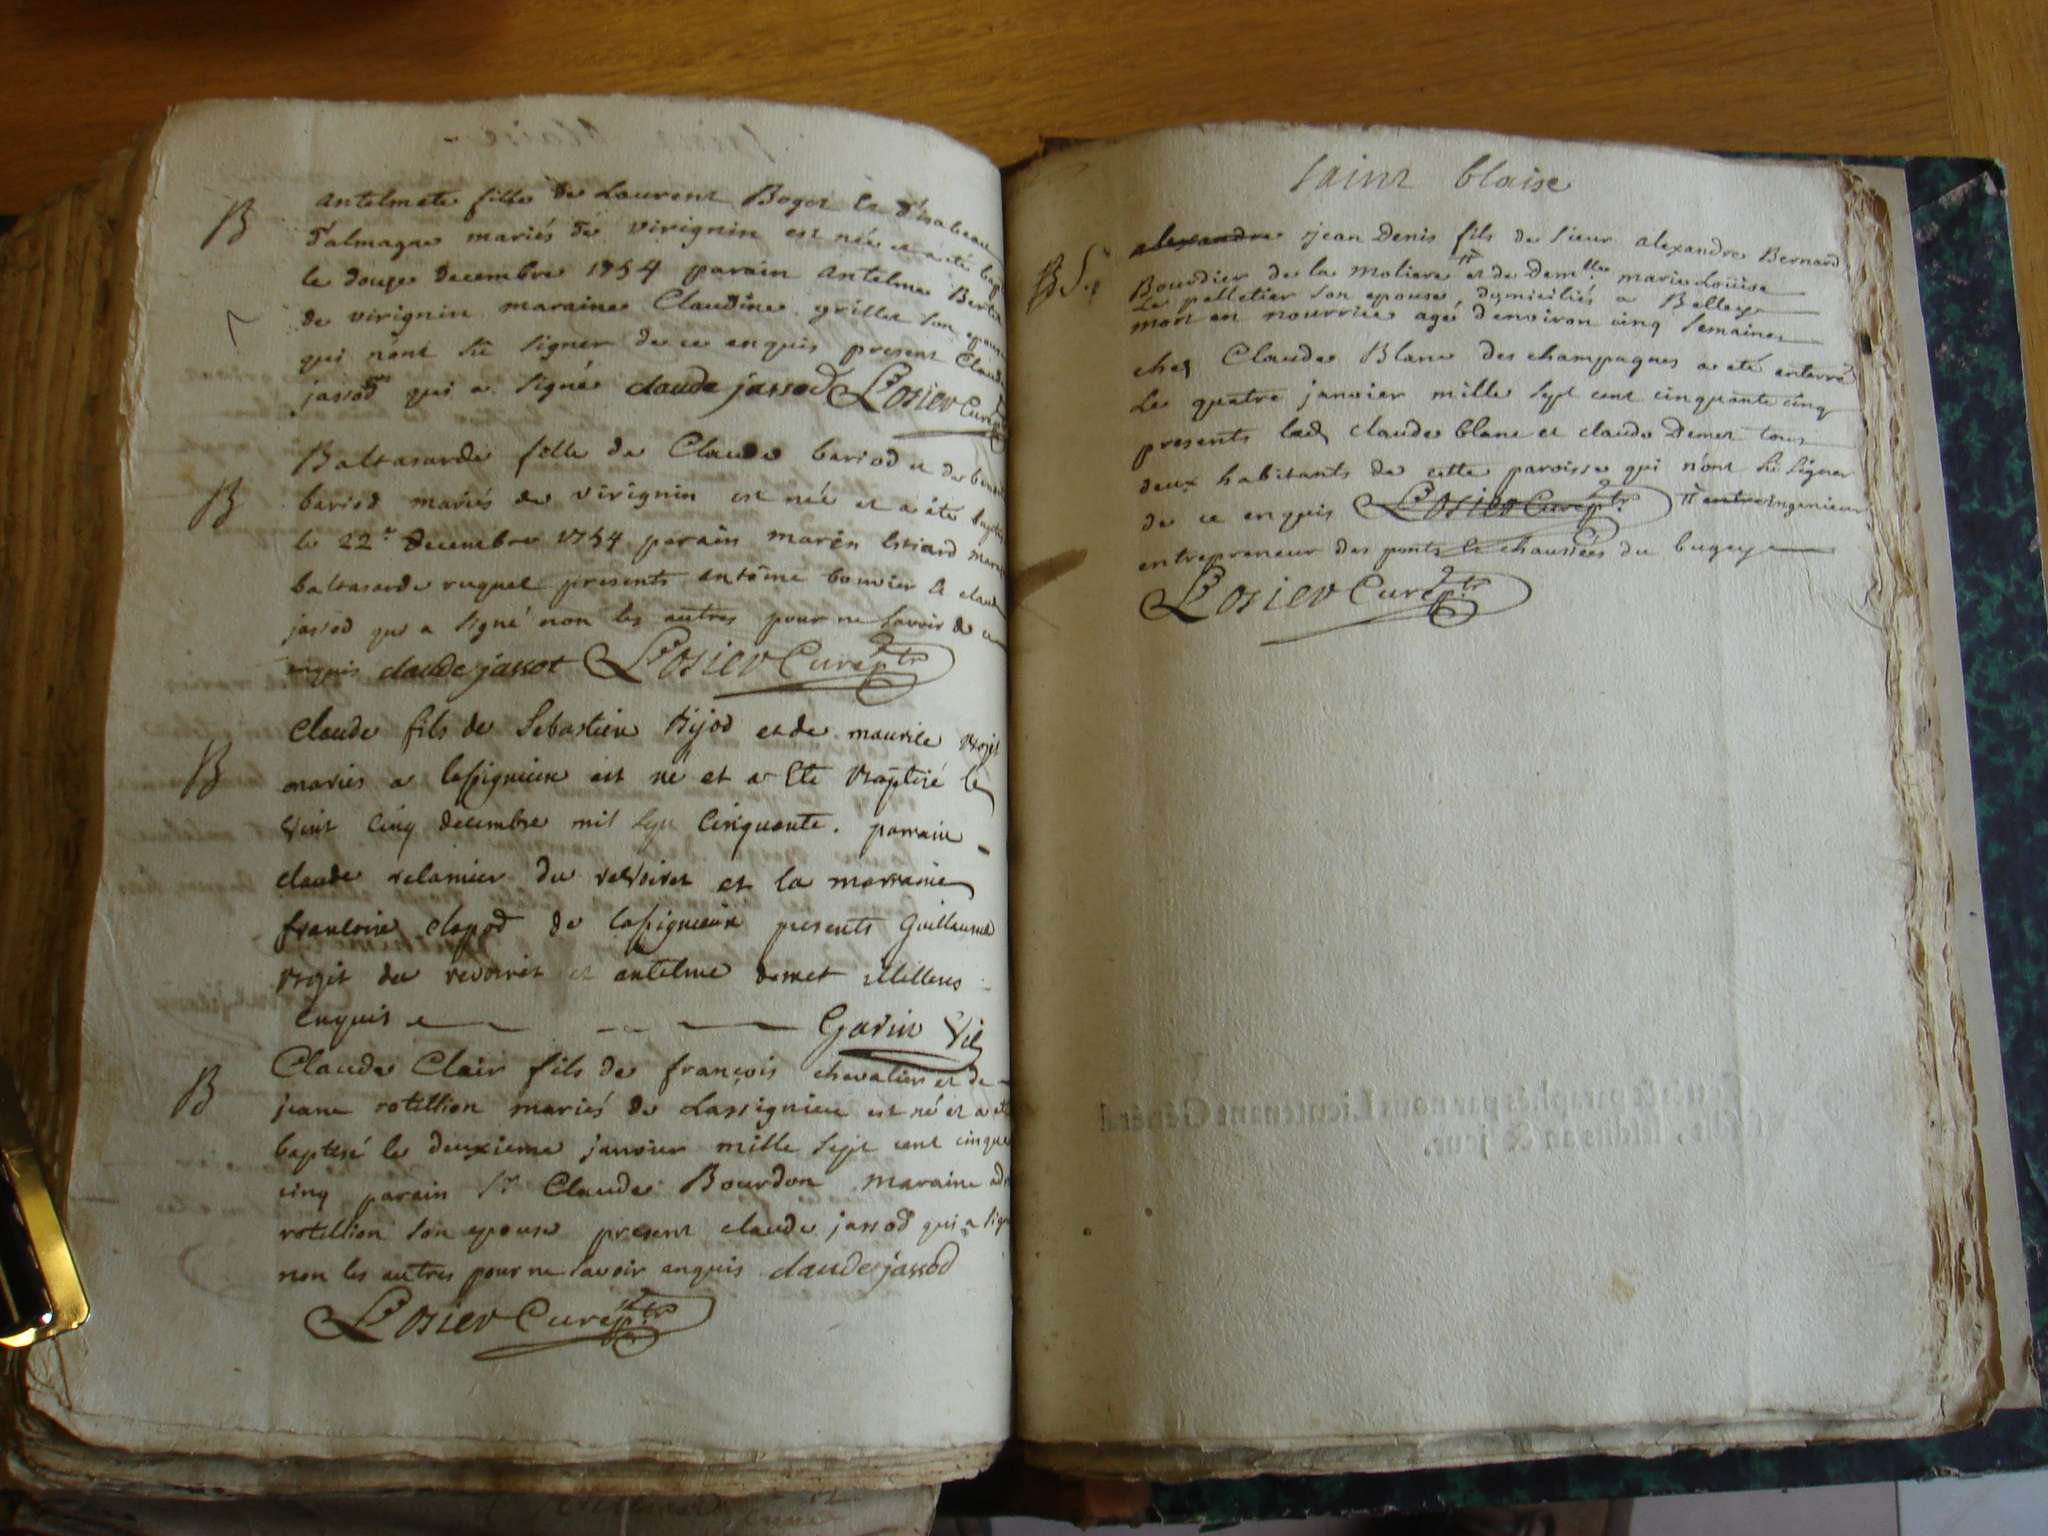 B
antelmete fille de Laurent Bogot et d'isabeau
d'almagne mariés de virignin est née et a été bap
le douze decembre 1754 parain antelme Bertet
de virignin maraine Claudine grillet son epouse
qui n'ont sû signer de ce enquis present Claude
jassod qui a signé claude jassod L'osier Curé
B
Baltasarde fille de Claude bariod et de
bariod mariés de virignin est née et a été bapt
le 22e decembre 1754 parain marin mar
baltasarde ruquet presents antoine bouvier et claude
jassod qui a signé non les autres pour ne savoir de ce
enquis claude jassot L'osier Curé ptr
B
Claude fils de Sebastien et de maurise
mariés a lassignieux est né et a ete Baptisé le
vint cinq decembre mil sept Cinquante. parrain
claude relamier du revoiret et la marraine
francoise clapod de lassignieux presents Guillaume
du revoiret et antelme demet illitterés
enquis Garin Vic
B
Claude Clair fils de françois chevalier et de
jeane rotillion mariés de Lassignieu est né et a eté
baptisé le deuxieme janvier mille sept cent cinqua
cinq parain Sr Claude Bourdon maraine
rotillion son epouse present claude jassod qui a signé
non les autres pour ne savoir enquis claude jassod
L'osier Curé ptr
saint blaise
alexandre jean Denis fils de sieur alexandre Bernard
Bourdier de la Moliere et de Demlle marie Louise
Le pelletier son epouse, domiciliés a Belley
mort en nourrice agé d'environ cinq semaines
chez Claude Blanc des champagnes a eté enterré
Le quatre janvier mille sept cent cinquante cinq
presents led claude blanc et claude Demet tous
deux habitants de cette paroisse qui n'ont sû signer
de ce enquis L'osier Curé ptr entre ingenieur
entrepreneur des ponts et chaussées du bugey
L'osier Curé ptr
paraphés par nous Lieutenant Général
, ledits an & jour.